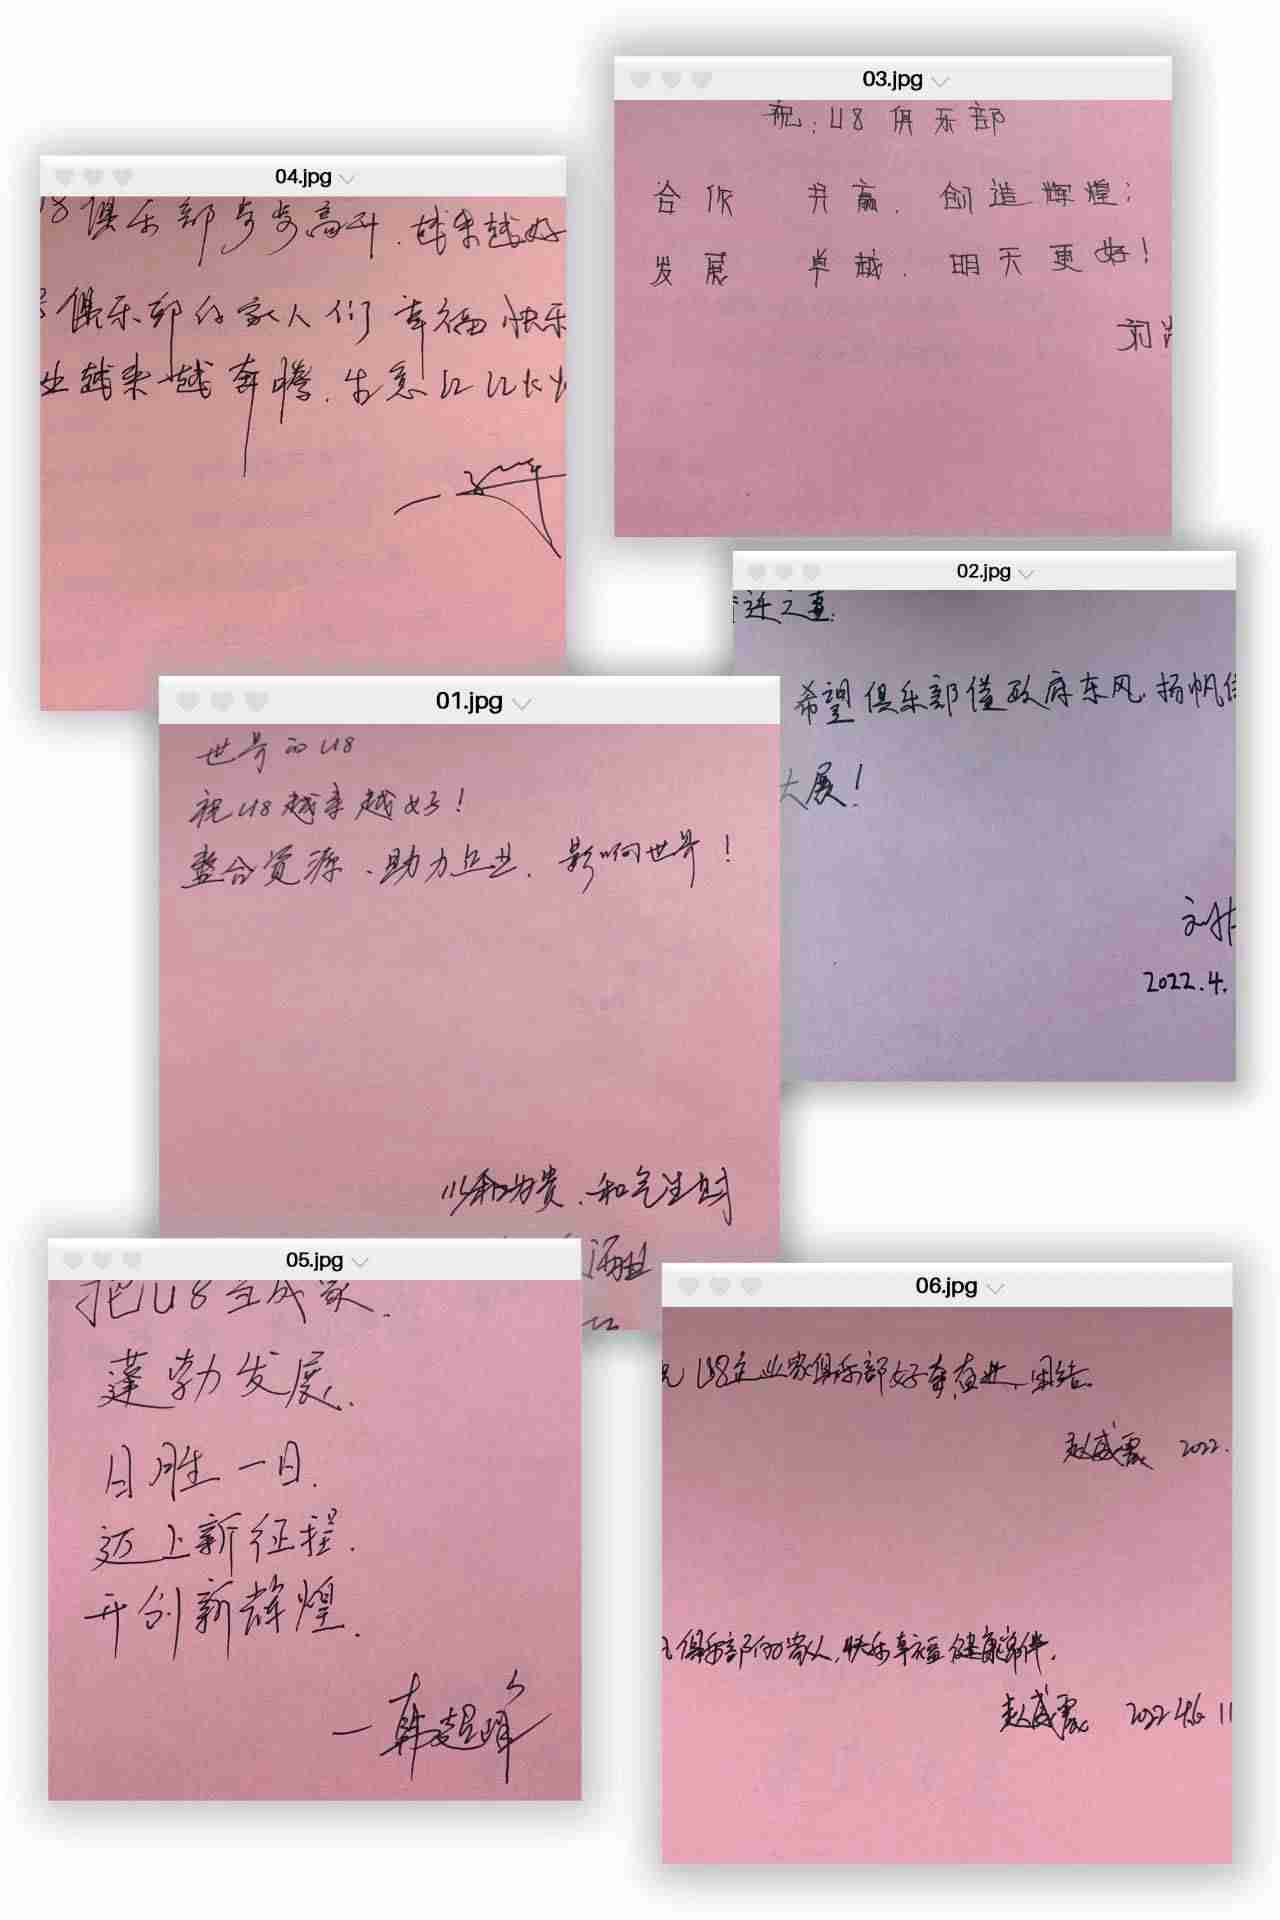 03.jpg
祝:U8 俱乐部
合作 共赢，创造辉煌;
发展 卓越，明天更好!
04.jpg
俱乐部步步高升，越来越好
俱乐部的家人们幸福快乐
业越来越奔腾，生意红红火火
02.jpg
之喜:
希望俱乐部借政府东风，扬帆
大展!
2022.4.
01.jpg
世界的U8
祝U8越来越好!
整合资源、助力企业，影响世界!
以和为贵、和气生财
05.jpg
把U8当成家，
蓬勃发展，
日胜一日，
迈上新征程，
开创新辉煌，
一韩超峰
06.jpg
U8企业家俱乐部好奋进，团结。
赵威震 2022.
俱乐部的家人，快乐幸福健康常伴。
赵威震 2022.4.16 11